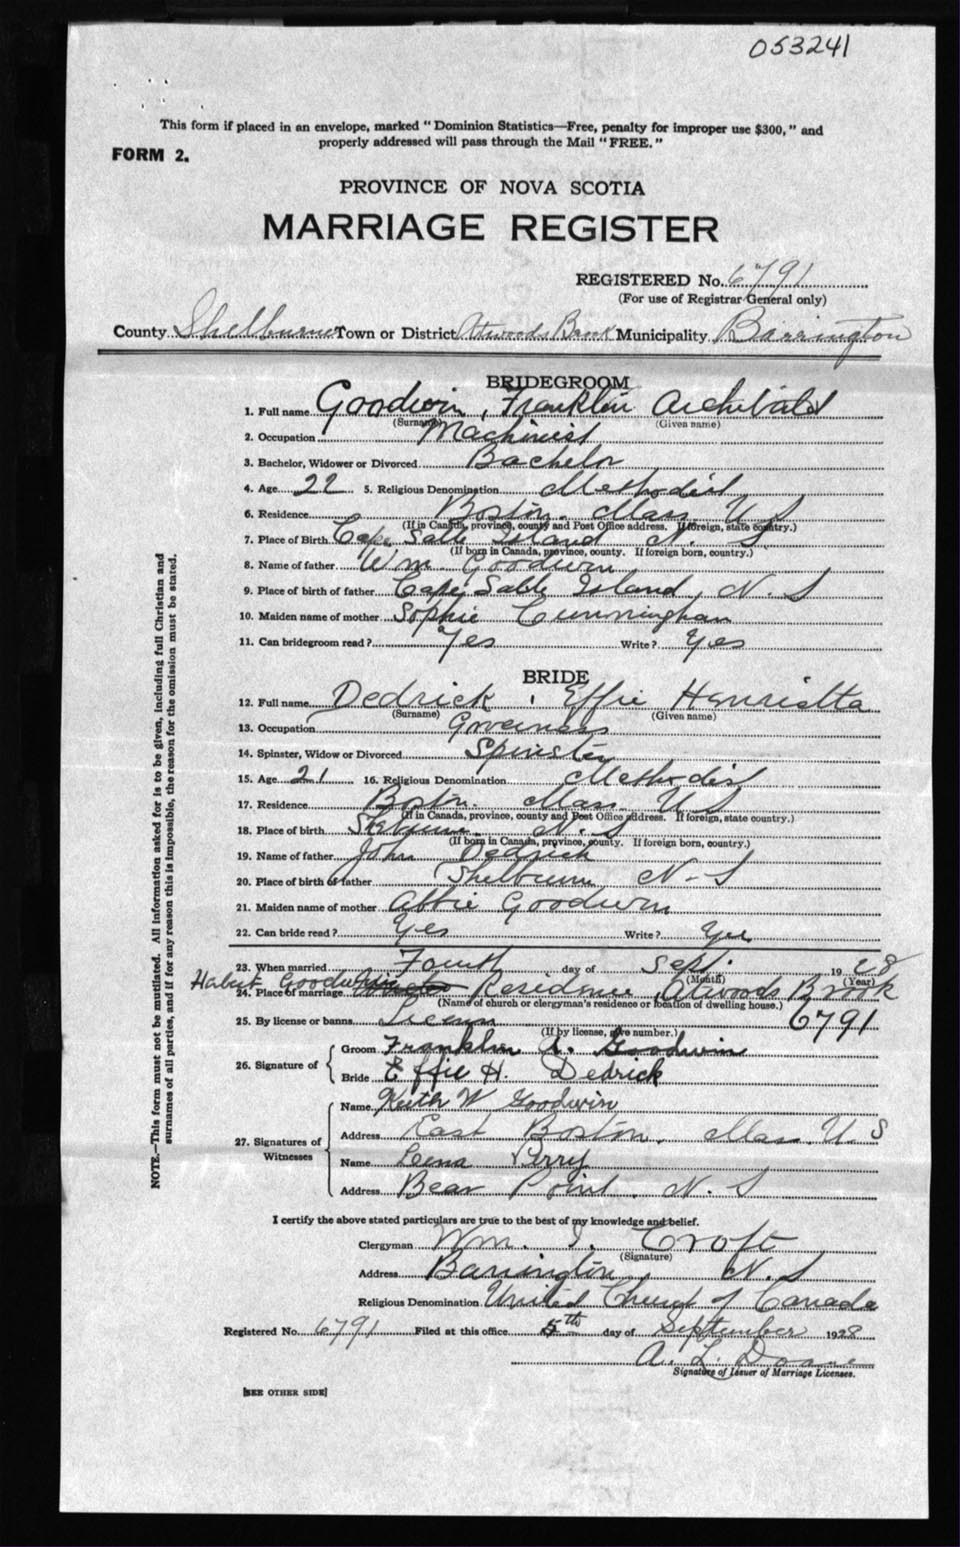 053241
This form if placed in an envelope, marked "Dominion Statistics—Free, penalty for improper use $300," and
properly addressed will pass through the Mail "FREE."
FORM 2.
PROVINCE OF NOVA SCOTIA
MARRIAGE REGISTER
REGISTERED No. 6791
(For use of Registrar General only)
County Shelburne Town or District Atwoods Brook Municipality Barrington
BRIDEGROOM
1. Full name Goodwin, Franklin Archibald
(Surname) (Given name)
2. Occupation Machinist
3. Bachelor, Widower or Divorced Bachelor
4. Age 22 5. Religious Denomination Methodist
6. Residence Boston. Mass U S
(If in Canada, province, county and Post Office address. If foreign, state country.)
7. Place of Birth Cape Sable Island N. S
(If born in Canada, province, county. If foreign born, country.)
8. Name of father Wm. Goodwin
9. Place of birth of father Cape Sable Island, N. S
10. Maiden name of mother Sophie Cunningham
11. Can bridegroom read? Yes Write? Yes
BRIDE
12. Full name Dedrick, Effie Henrietta
(Surname) (Given name)
13. Occupation
14. Spinster, Widow or Divorced Spinster
15. Age 21 16. Religious Denomination Methodist
17. Residence Boston. Mass U S
(If in Canada, province, county and Post Office address. If foreign, state country.)
18. Place of birth Shelburne N. S
(If born in Canada, province, county. If foreign born, country.)
19. Name of father John Dedrick
20. Place of birth of father Shelburne N-S
21. Maiden name of mother Abbie Goodwin
22. Can bride read? Yes Write? Yes
23. When married Fourth day of Sept. 1928
(Month) (Year)
24. Place of marriage Goodwins Residence, Atwoods Brook
(Name of church or clergyman's residence or location of dwelling house.)
25. By license or banns License 6791
(If by license, give number.)
26. Signature of
Groom Franklin A. Goodwin
Bride Effie H. Dedrick
27. Signatures of Witnesses
Name Keith W Goodwin
Address East Boston. Mass. U. S
Name Lena Perry
Address Bear Point. N. S
I certify the above stated particulars are true to the best of my knowledge and belief.
Clergyman Wm. I. Croft
(Signature)
Address Barrington N. S
Religious Denomination United Church of Canada
Registered No. 6791 Filed at this office 5th day of September 1928
A. L. Doane
Signature of Issuer of Marriage Licenses.
[SEE OTHER SIDE]
NOTE.—This form must not be mutilated. All information asked for is to be given, including full Christian and
surnames of all parties, and if for any reason this is impossible, the reason for the omission must be stated.